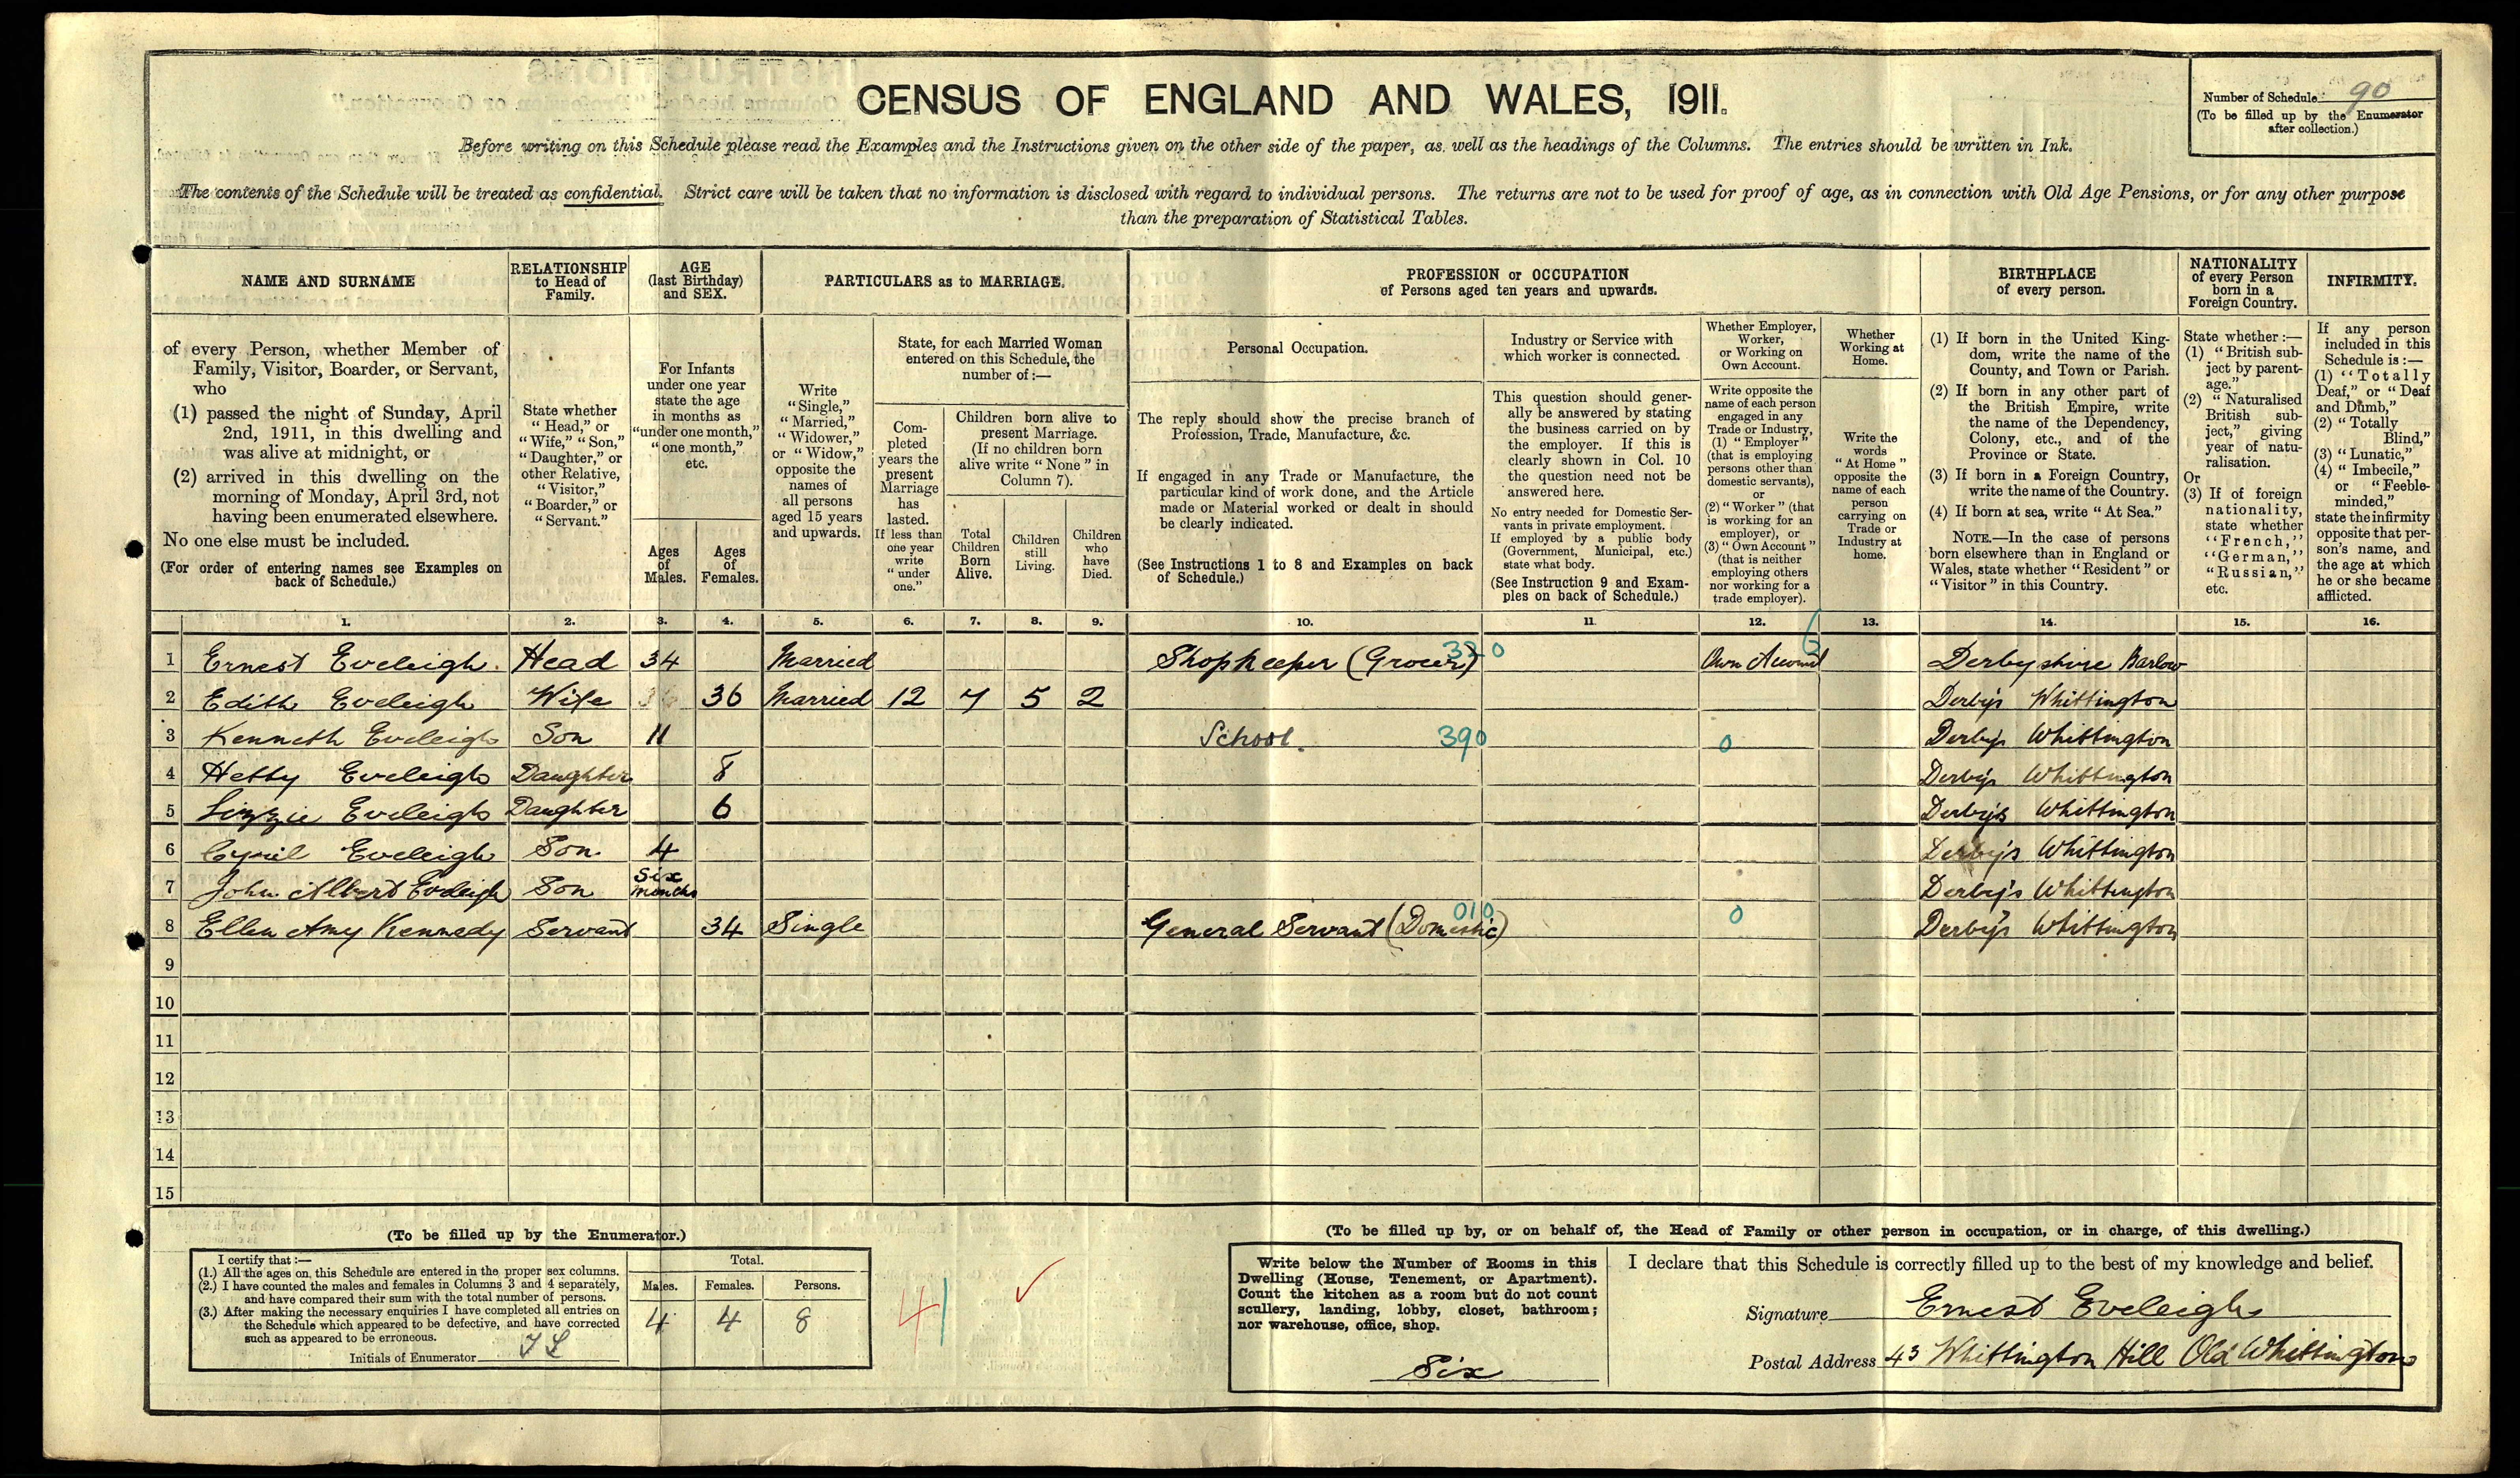 CENSUS OF ENGLAND AND WALES, 1911.
Number of Schedule 90
(To be filled up by the Enumerator
after collection.)
Before writing on this Schedule please read the Examples and the Instructions given on the other side of the paper, as well as the headings of the Columns. The entries should be written in Ink.
The contents of the Schedule will be treated as confidential. Strict care will be taken that no information is disclosed with regard to individual persons. The returns are not to be used for proof of age, as in connection with Old Age Pensions, or for any other purpose
than the preparation of Statistical Tables.
NAME AND SURNAME
of every Person, whether Member of
Family, Visitor, Boarder, or Servant,
who
(1) passed the night of Sunday, April
2nd, 1911, in this dwelling and
was alive at midnight, or
(2) arrived in this dwelling on the
morning of Monday, April 3rd, not
having been enumerated elsewhere.
No one else must be included.
(For order of entering names see Examples on
back of Schedule.)
RELATIONSHIP
to Head of
Family.
State whether
"Head," or
"Wife," "Son,"
"Daughter," or
other Relative,
"Visitor,"
"Boarder," or
"Servant."
AGE
(last Birthday)
and SEX.
For Infants
under one year
state the age
in months as
"under one month,"
"one month,"
etc.
Ages
of
Males.
Ages
of
Females.
PARTICULARS as to MARRIAGE.
Write
"Single,"
"Married,"
"Widower,"
or "Widow,"
opposite the
names of
all persons
aged 15 years
and upwards.
State, for each Married Woman
entered on this Schedule, the
number of:—
Com-
pleted
years the
present
Marriage
has
lasted.
If less than
one year
write
"under
one."
Children born alive to
present Marriage.
(If no children born
alive write "None" in
Column 7).
Total
Children
Born
Alive.
Children
still
Living.
Children
who
have
Died.
PROFESSION or OCCUPATION
of Persons aged ten years and upwards.
Personal Occupation.
The reply should show the precise branch of
Profession, Trade, Manufacture, &c.
If engaged in any Trade or Manufacture, the
particular kind of work done, and the Article
made or Material worked or dealt in should
be clearly indicated.
(See Instructions 1 to 8 and Examples on back
of Schedule.)
Industry or Service with
which worker is connected.
This question should gener-
ally be answered by stating
the business carried on by
the employer. If this is
clearly shown in Col. 10
the question need not be
answered here.
No entry needed for Domestic Ser-
vants in private employment.
If employed by a public body
(Government, Municipal, etc.)
state what body.
(See Instruction 9 and Exam-
ples on back of Schedule.)
Whether Employer,
Worker,
or Working on
Own Account.
Write opposite the
name of each person
engaged in any
Trade or Industry,
(1) "Employer"
(that is employing
persons other than
domestic servants),
or
(2) "Worker" (that
is working for an
employer), or
(3) "Own Account"
(that is neither
employing others
nor working for a
trade employer).
Whether
Working at
Home.
Write the
words
"At Home"
opposite the
name of each
person
carrying on
Trade or
Industry at
home.
BIRTHPLACE
of every person.
(1) If born in the United King-
dom, write the name of the
County, and Town or Parish.
(2) If born in any other part of
the British Empire, write
the name of the Dependency,
Colony, etc., and of the
Province or State.
(3) If born in a Foreign Country,
write the name of the Country.
(4) If born at sea, write "At Sea."
NOTE.—In the case of persons
born elsewhere than in England or
Wales, state whether "Resident" or
"Visitor" in this Country.
NATIONALITY
of every Person
born in a
Foreign Country.
State whether:—
(1) "British sub-
ject by parent-
age."
(2) "Naturalised
British sub-
ject," giving
year of natu-
ralisation.
Or
(3) If of foreign
nationality,
state whether
"French,"
"German,"
"Russian,"
etc.
INFIRMITY.
If any person
included in this
Schedule is:—
(1) "Totally
Deaf," or "Deaf
and Dumb,"
(2) "Totally
Blind,"
(3) "Lunatic,"
(4) "Imbecile,"
or "Feeble-
minded,"
state the infirmity
opposite that per-
son's name, and
the age at which
he or she became
afflicted.
1. 2. 3. 4. 5. 6. 7. 8. 9. 10. 11. 12. 13. 14. 15. 16.
1 Ernest Eveleigh. Head 34 Married Shopkeeper (Grocer) Own Account 6 Derbyshire Barlow
2 Edith Eveleigh Wife 36 Married 12 7 5 2 Derby's Whittington
3 Kenneth Eveleigh Son 11 School. 390 0 Derby's Whittington
4 Hetty Eveleigh Daughter 8 Derby's Whittington
5 Lizzie Eveleigh Daughter 6 Derby's Whittington
6 Cyril Eveleigh Son. 4 Derby's Whittington
7 John Albert Eveleigh Son Six Months Derby's Whittington
8 Ellen Amy Kennedy Servant 34 Single General Servant (Domestic) 010 0 Derby's Whittington
9
10
11
12
13
14
15
(To be filled up by the Enumerator.)
I certify that:—
(1.) All the ages on this Schedule are entered in the proper sex columns.
(2.) I have counted the males and females in Columns 3 and 4 separately,
and have compared their sum with the total number of persons.
(3.) After making the necessary enquiries I have completed all entries on
the Schedule which appeared to be defective, and have corrected
such as appeared to be erroneous.
Initials of Enumerator
Total.
Males. Females. Persons.
4 4 8
41
(To be filled up by, or on behalf of, the Head of Family or other person in occupation, or in charge, of this dwelling.)
Write below the Number of Rooms in this
Dwelling (House, Tenement, or Apartment).
Count the kitchen as a room but do not count
scullery, landing, lobby, closet, bathroom;
nor warehouse, office, shop.
Six
I declare that this Schedule is correctly filled up to the best of my knowledge and belief.
Signature Ernest Eveleigh
Postal Address 43 Whittington Hill Old Whittington